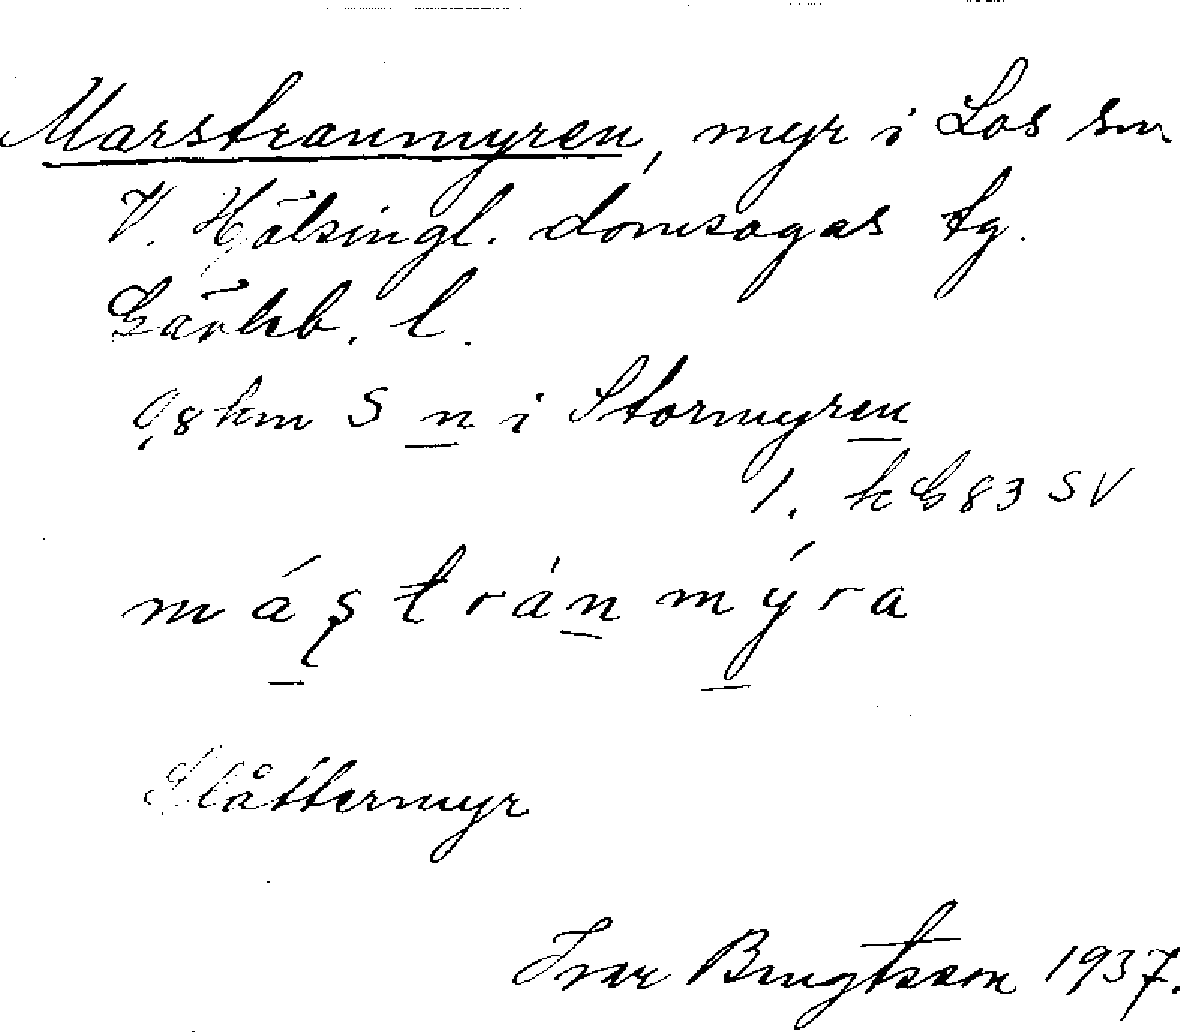 Marstranmyren, myr i Los sn
V. Hälsingl. domsagas tg.
Gävleb. l.
0,8 km S n i Stormyren
1. k G 83 SV
mástránmýra
Slåttermyr
Ivar Bengtsson 1937.